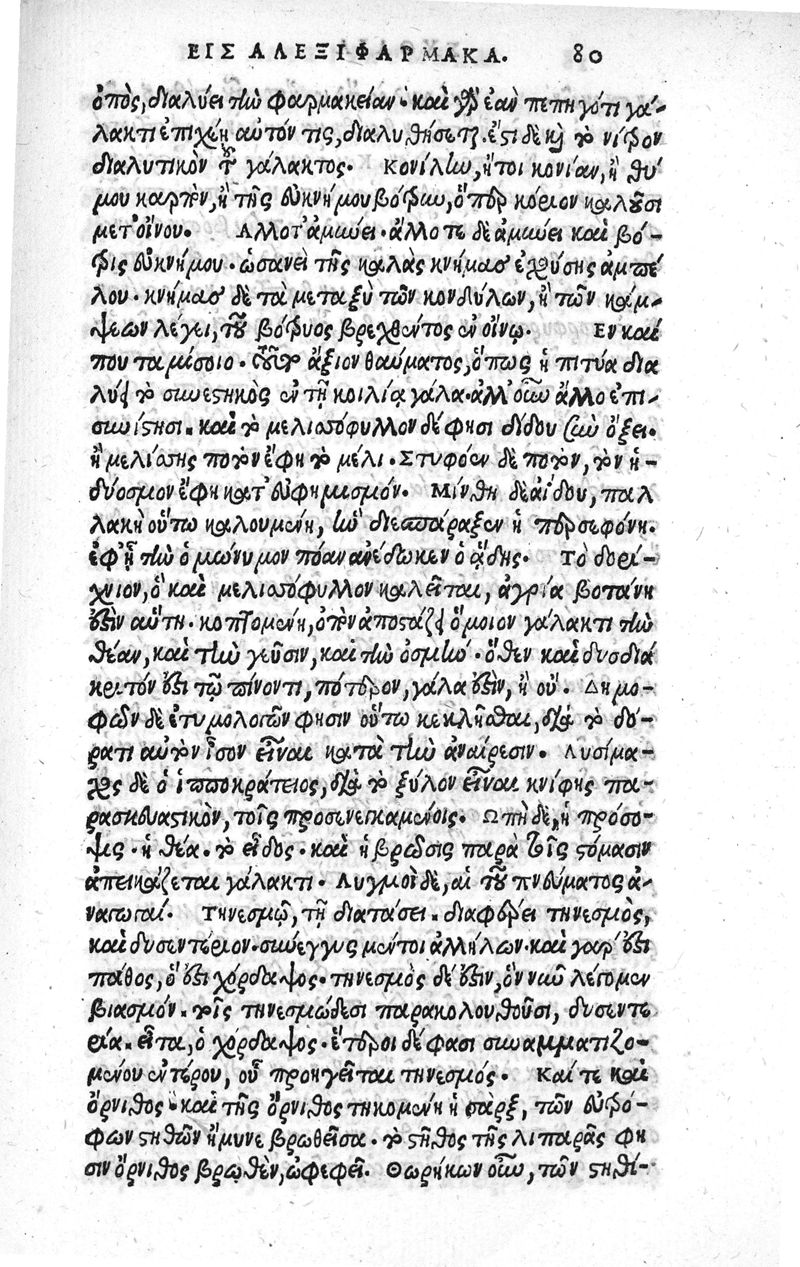 ΕΙΣ ΑΛΕΞΙΦΑΡΜΑΚΑ. 80
ὀπὸς, διαλύει τὴν φαρμακείαν· καὶ γὰρ ἐὰν πεπηγότι γά-
λακτι ἐπιχέῃ αὐτόν τις, διαλυθήσεται. ἔστι δὲ καὶ τὸ νίτρον
διαλυτικὸν τοῦ γάλακτος. Κονίλην, ἤτοι κονίαν, ἢ θύ
μου καρπὸν, ἢ τῆς εὐκνήμου βότρυν, ὅπερ κόριον καλοῦσι
μετ' οἴνου. Αλλοτ' ἀμύνει· ἄλλοτε δὲ ἀμύνει καὶ βό-
τρις εὐκνήμου· ὡσανεὶ τῆς καλὰς κνήμας ἐχούσης ἀμπέ
λου· κνήμας δὲ τὰ μεταξὺ τῶν κονδύλων, ἢ τῶν κάμ-
ψεων λέγει, τοῦ βότρυος βρεχθέντος ἐν οἴνῳ. Εν καί
που ταμίσοιο· τοῦτο ἄξιον θαύματος, ὅπως ἡ πιτύα δια
λύει τὸ συνεστηκὸς ἐν τῇ κοιλίᾳ γάλα· ἀλλ' οὖν ἄλλο ἐπι-
συνίστησι. καὶ τὸ μελισσόφυλλον δέ φησι δίδου σὺν ὄξει·
ἢ μελίσσης ποτὸν ἔφη τὸ μέλι. Στυφόεν δὲ ποτὸν, τὸν ἡ-
δύοσμον ἔφη κατ' εὐφημισμόν. Μίνθη δὲ ἀΐδου, παλ
λακὴ οὕτω καλουμένη, ἣν διεσπάραξεν ἡ περσεφόνη·
ἐφ' ᾗ τὴν ὁμώνυμον πόαν ἀνέδωκεν ὁ ᾅδης. Τὸ δορί-
χνιον, ὃ καὶ μελισσόφυλλον καλεῖται, ἀγρία βοτάνη
ἐστὶν αὕτη· κοπτομένη, ὀπὸν ἀποστάζει ὅμοιον γάλακτι τὴν
θέαν, καὶ τὴν γεῦσιν, καὶ τὴν ὀσμήν· ὅθεν καὶ δυσδιά
κριτόν ἐστι τῷ πίνοντι, πότερον, γάλα ἐστὶν, ἢ οὔ. Δημο-
φῶν δὲ ἐτυμολογῶν φησιν οὕτω κεκλῆσθαι, διὰ τὸ δό-
ρατι αὐτὸν ἶσον εἶναι κατὰ τὴν ἀναίρεσιν. Λυσίμα-
χος δὲ ὁ ἱπποκράτειος, διὰ τὸ ξύλον εἶναι κνίφης πα-
ρασκευαστικὸν, τοῖς προσενεγκαμένοις. Ωπὴ δὲ, ἡ πρόσο-
ψις· ἡ θέα. τὸ εἶδος· καὶ ἡ βρῶσις παρὰ τοῖς στόμασιν
ἀπεικάζεται γάλακτι. Λυγμοὶ δὲ, αἱ τοῦ πνεύματος ἀ-
ναγωγαί. Τηνεσμῷ, τῇ διατάσει. διαφέρει τηνεσμὸς,
καὶ δυσεντέριον· σύνεγγυς μέντοι ἀλλήλων· καὶ γάρ ἐστι
πάθος, ὅ ἐστι χόρδαψος· τηνεσμὸς δέ ἐστιν, ὃν νῦν λέγομεν
βιασμόν. τοῖς τηνεσμώδεσι παρακολουθοῦσι, δυσεντε
ρία. εἶτα, ὁ χόρδαψος· ἕτεροι δέ φασι συναμματιζο-
μένου ἐντέρου, οὗ προηγεῖται τηνεσμός. Καί τε καὶ
ὄρνιθος· καὶ τῆς ὄρνιθος τηκομένη ἡ σὰρξ, τῶν εὐτρό-
φων στηθῶν ἤμυνε βρωθεῖσα. τὸ στῆθος τῆς λιπαρᾶς φη
σιν ὄρνιθος βρωθὲν, ὠφελεῖ. Θωρήκων οὖν, τῶν στηθί-